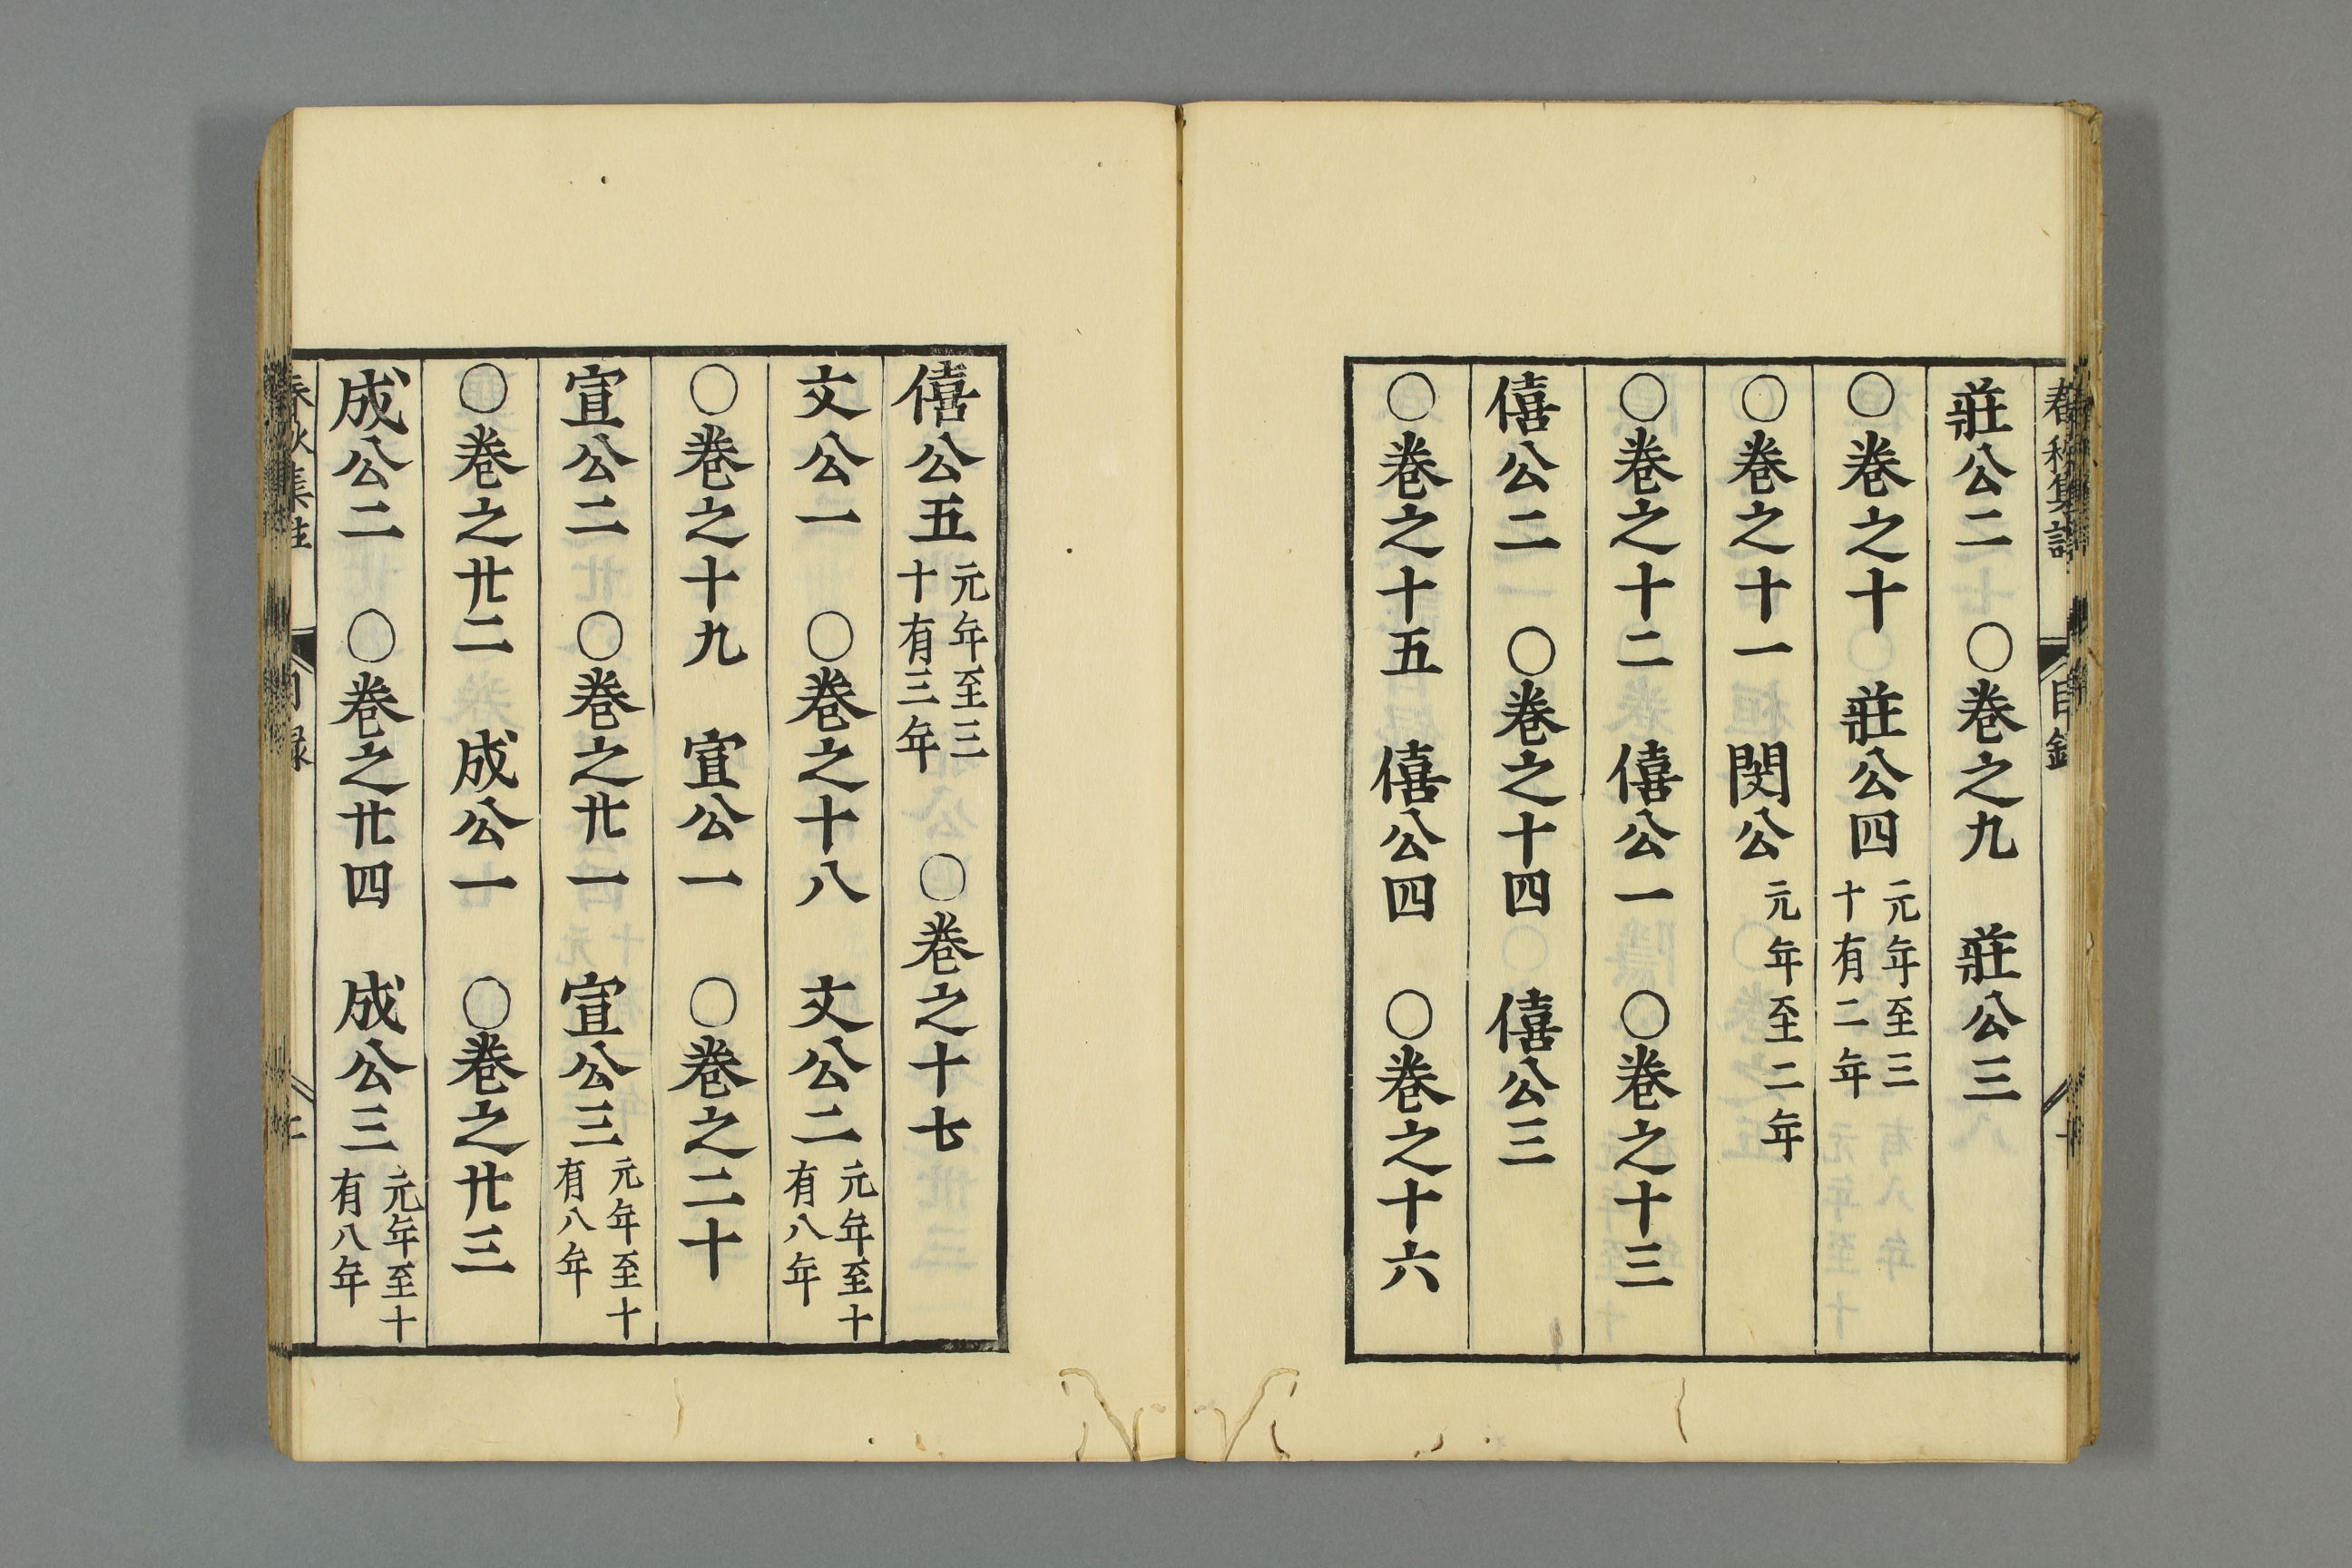 莊公二　〇卷之九　莊公三
〇卷之十　莊公四　元年至三十有二年
〇卷之十一　閔公　元年至二年
〇卷之十二　僖公一　〇卷之十三
僖公二　〇卷之十四　僖公三
〇卷之十五　僖公四　〇卷之十六
僖公五　元年至三十有三年　〇卷之十七
文公一　〇卷之十八　文公二　元年至十有八年
〇卷之十九　宣公一　〇卷之二十
宣公二　〇卷之廿一　宣公三　元年至十有八年
〇卷之廿二　成公一　〇卷之廿三
成公二　〇卷之廿四　成公三　元年至十有八年